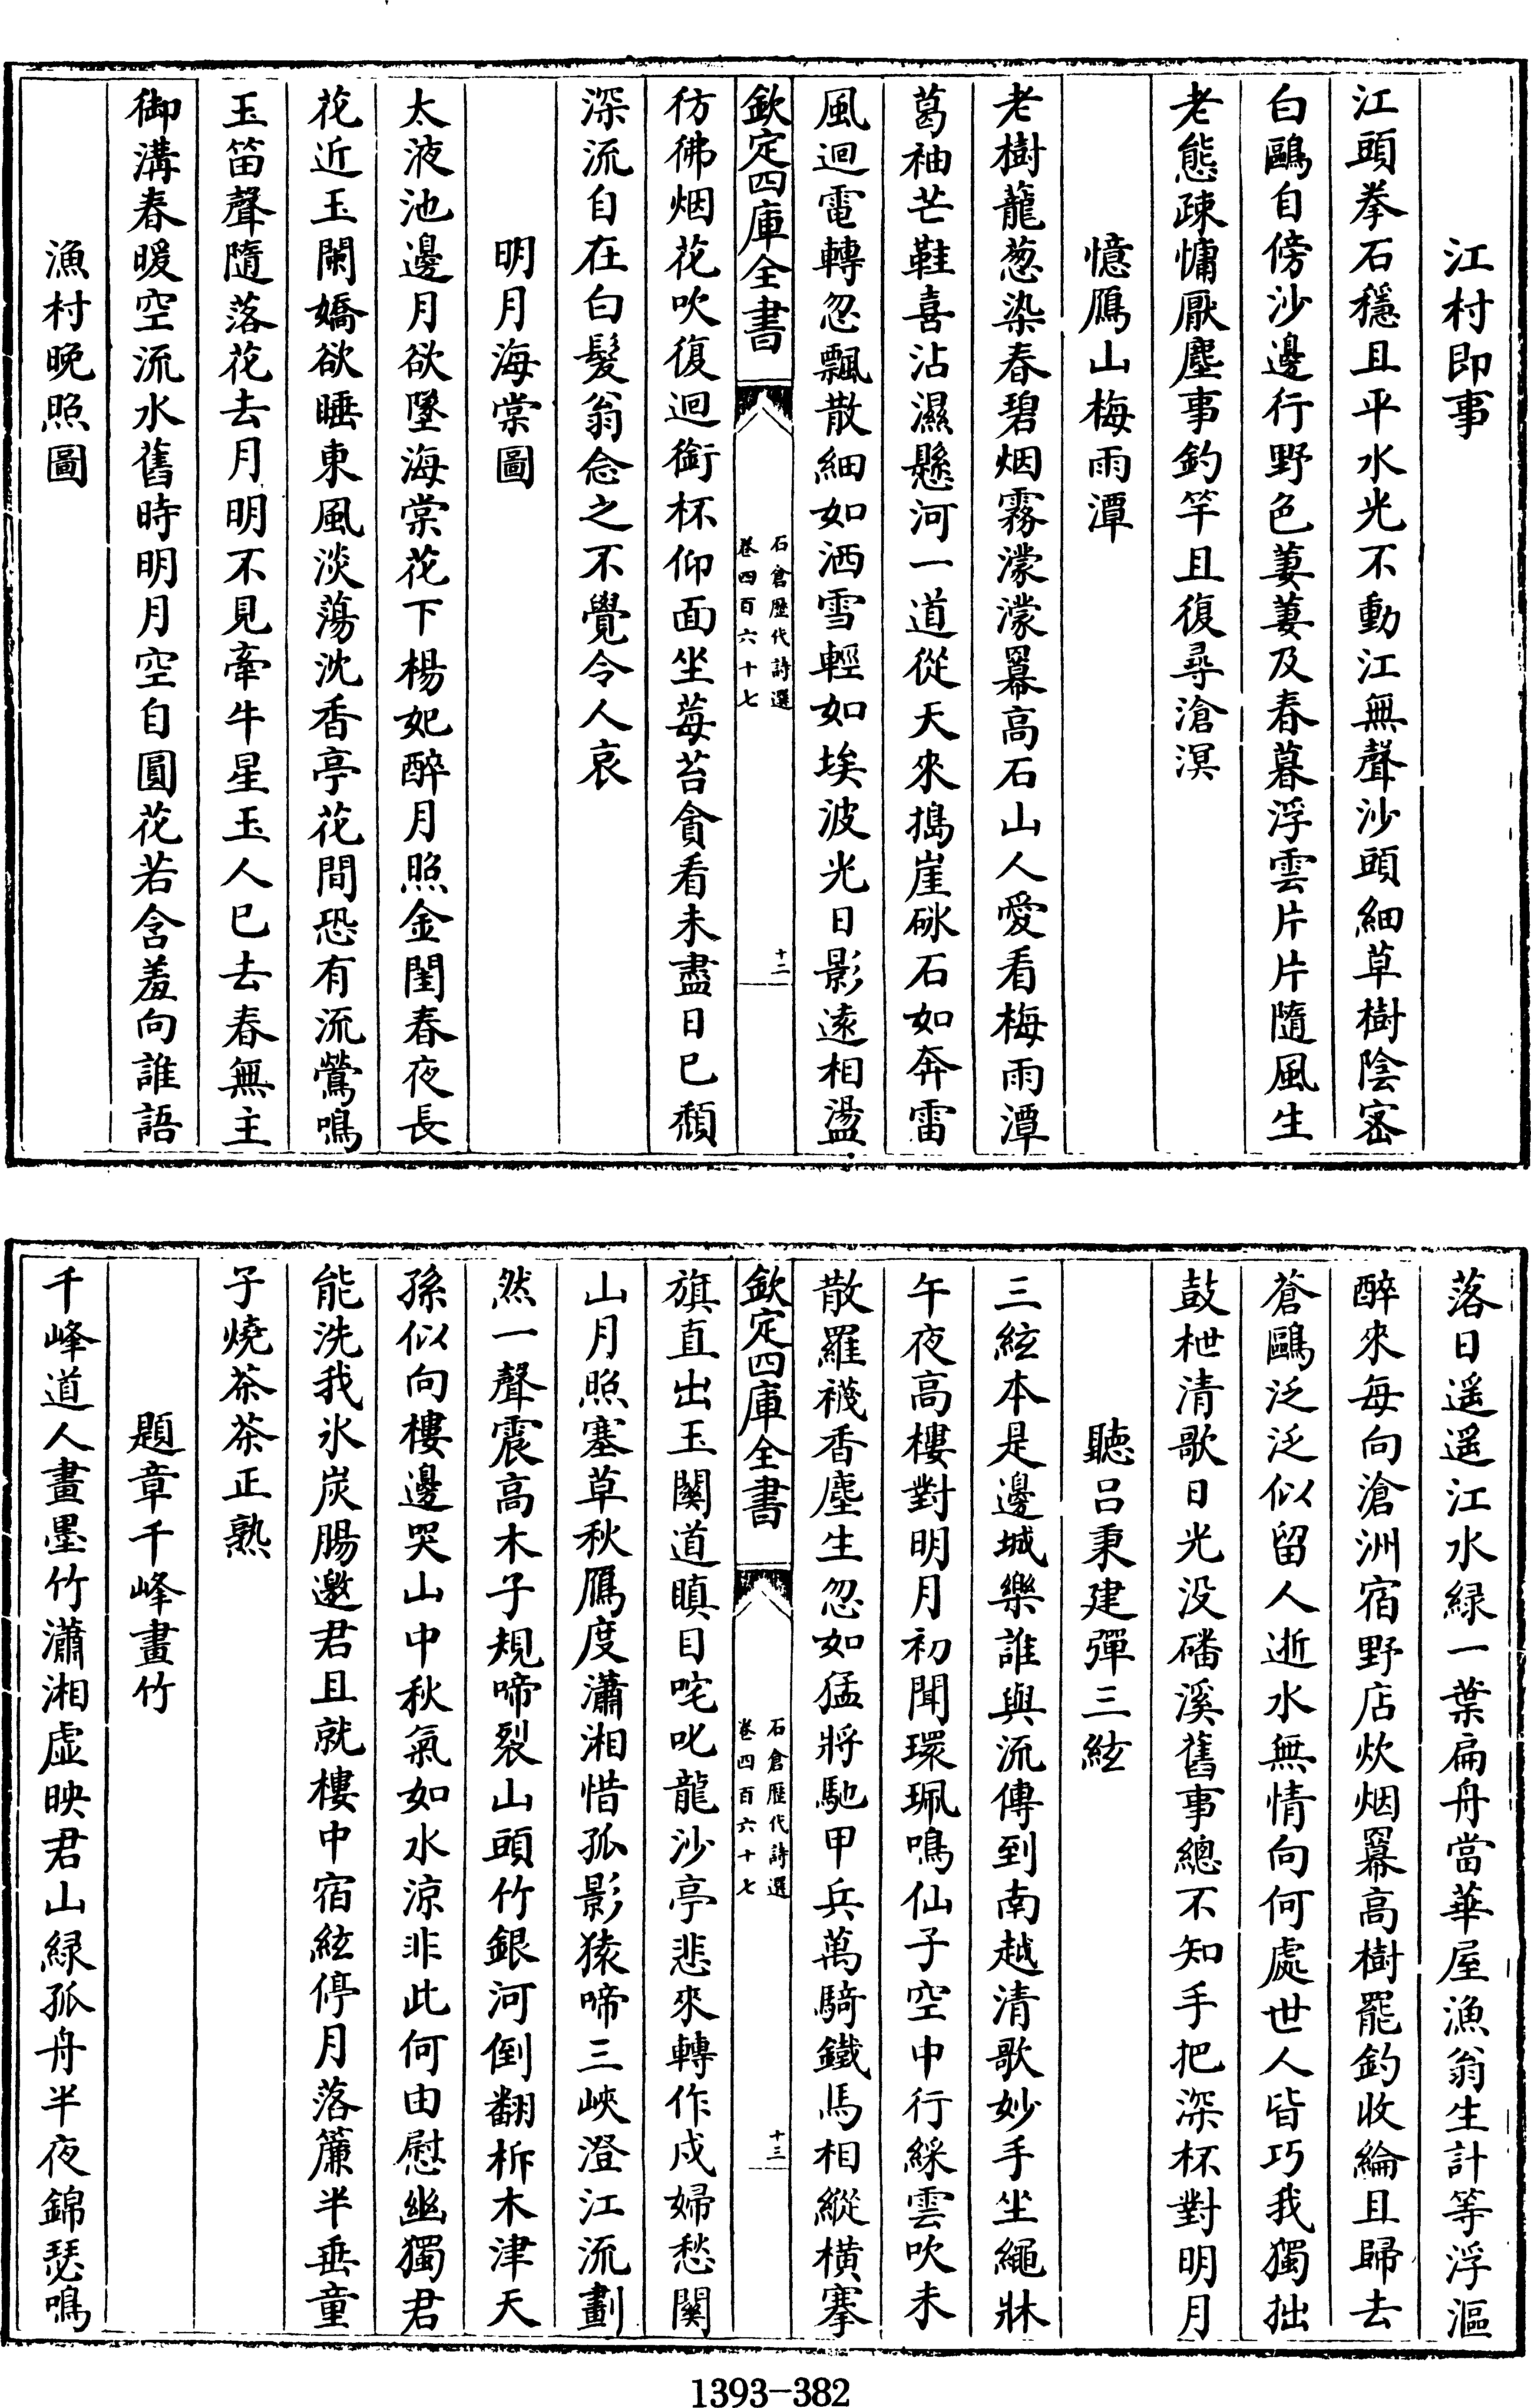 江村即事
江頭拳石穩且平水光不動江無聲沙頭細草樹陰密
白鷗自傍沙邊行野色萋萋及春暮浮雲片片隨風生
老態疎慵厭塵事釣竿且復尋滄溟
憶鴈山梅雨潭
老樹蘢葱染春碧烟霧濛濛羃高石山人愛看梅雨潭
葛袖芒鞋喜沾濕懸河一道從天來搗崖砯石如奔雷
風迴電轉忽飄散細如洒雪輕如埃波光日影遠相盪
欽定四庫全書
石倉歴代詩選
卷四百六十七
十二
彷彿烟花吹復迴銜杯仰面坐莓苔貪看未盡日已頹
深流自在白髮翁念之不覺令人哀
明月海棠圖
太液池邊月欲墜海棠花下楊妃醉月照金閨春夜長
花近玉闌嬌欲睡東風淡蕩沈香亭花間恐有流鶯鳴
玉笛聲隨落花去月明不見牽牛星玉人已去春無主
御溝春暖空流水舊時明月空自圓花若含羞向誰語
漁村晚照圖
落日遥遥江水緑一葉扁舟當華屋漁翁生計等浮漚
醉來每向滄洲宿野店炊烟羃高樹罷釣收綸且歸去
蒼鷗泛泛似留人逝水無情向何處世人皆巧我獨拙
鼓枻清歌日光没磻溪舊事總不知手把深杯對明月
聽吕秉建彈三絃
三絃本是邊城樂誰與流傳到南越清歌妙手坐繩牀
午夜高樓對明月初聞環珮鳴仙子空中行綵雲吹未
散羅襪香塵生忽如猛將馳甲兵萬騎鐵馬相縱横搴
欽定四庫全書
石倉歴代詩選
卷四百六十七
十三
旗直出玉關道瞋目咤叱龍沙亭悲來轉作戍婦愁關
山月照塞草秋鴈度瀟湘惜孤影猿啼三峽澄江流劃
然一聲震高木子規啼裂山頭竹銀河倒翻柝木津天
孫似向樓邊哭山中秋氣如水涼非此何由慰幽獨君
能洗我氷炭腸邀君且就樓中宿絃停月落簾半垂童
子燒茶茶正熟
題章千峰畫竹
千峰道人畫墨竹瀟湘虚映君山緑孤舟半夜錦瑟鳴
1393-382